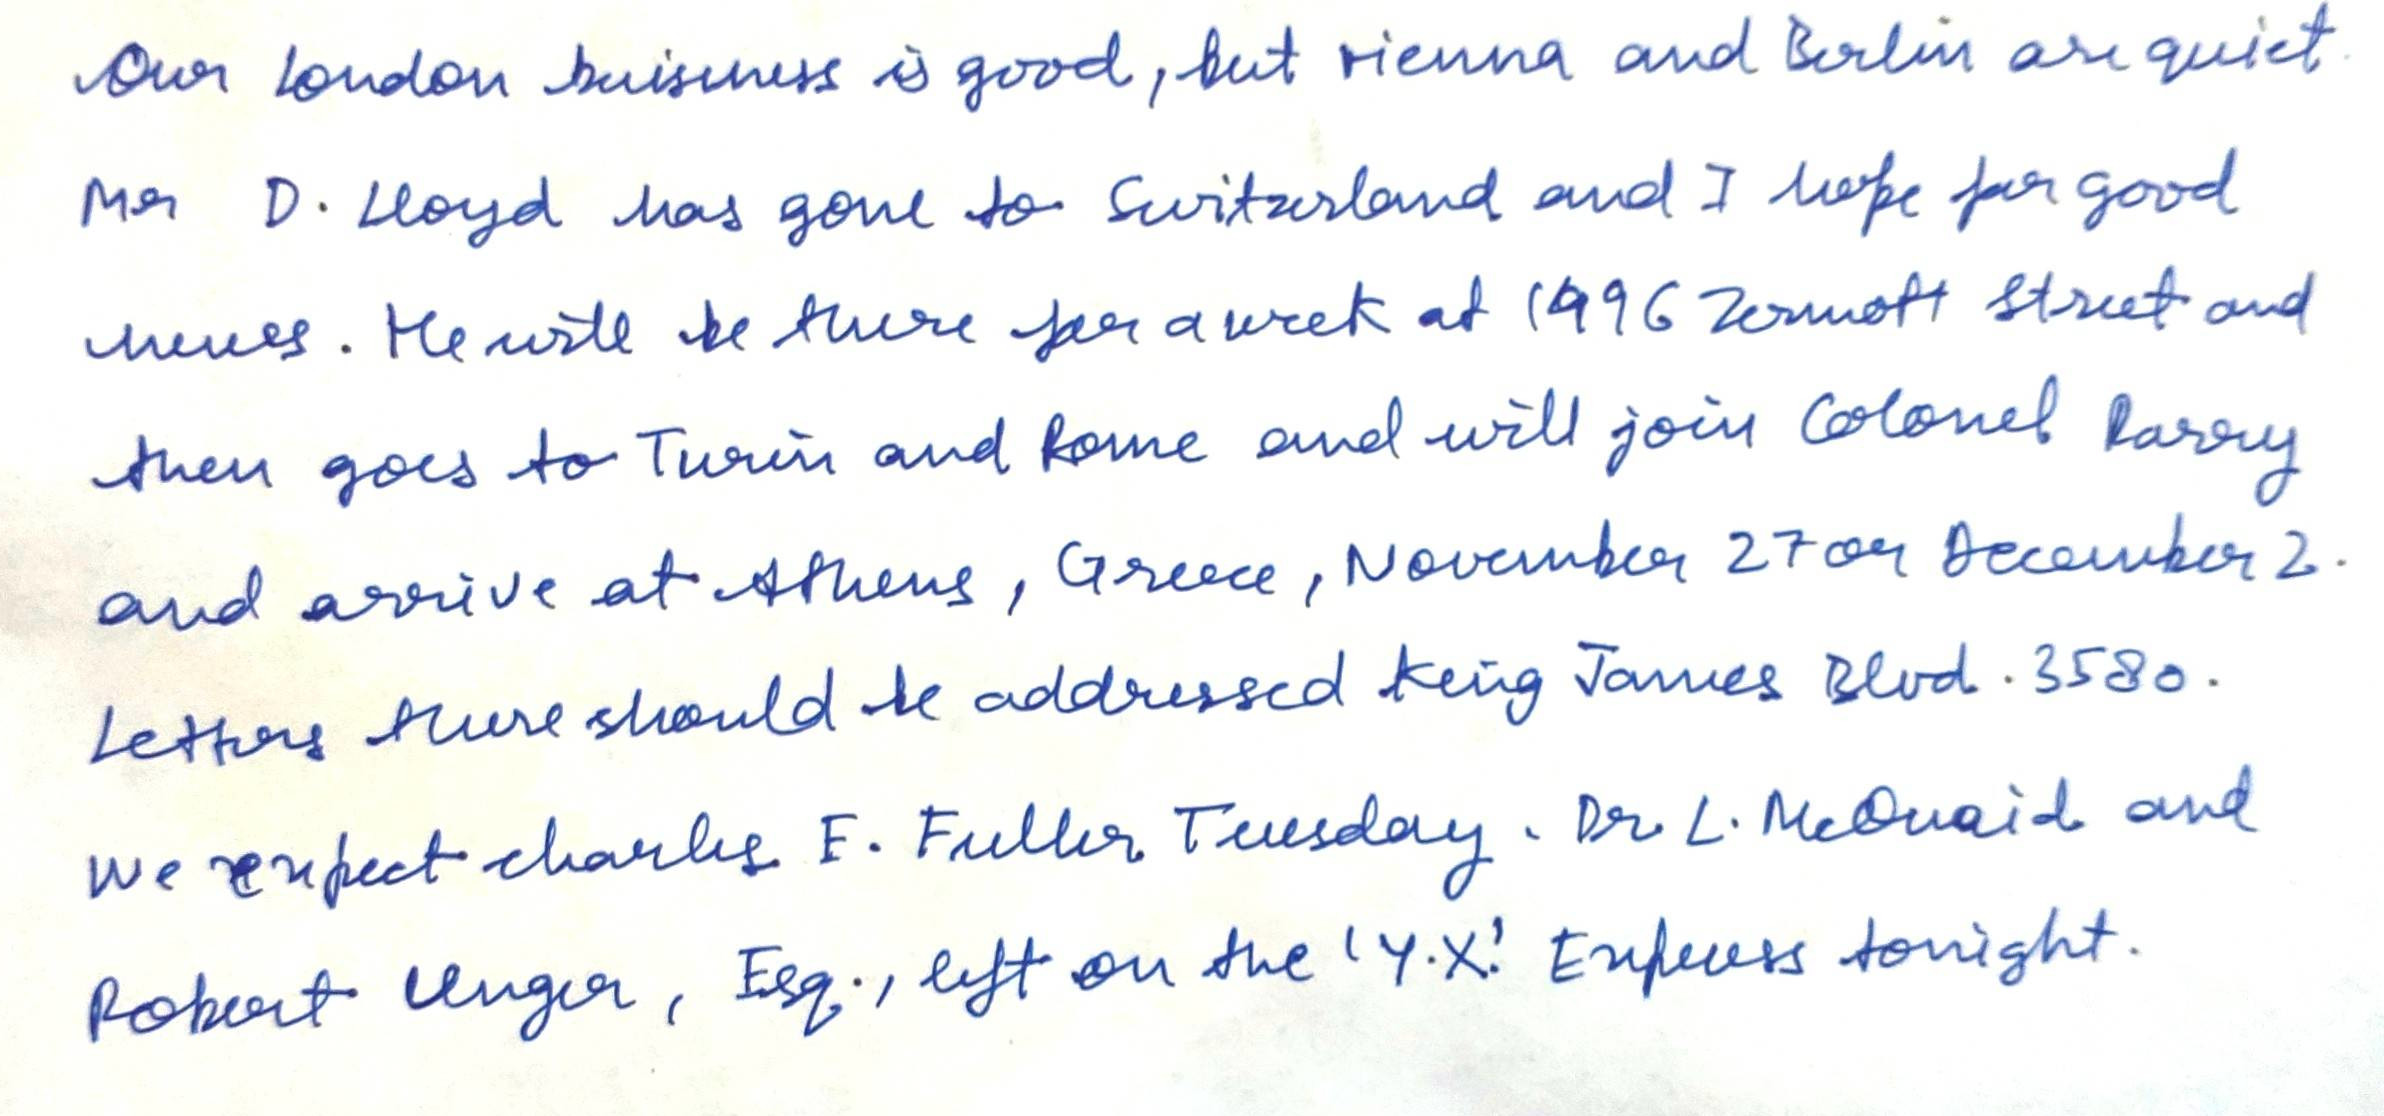 Our London buisness is good, but Vienna and Berlin are quiet.
Mr D. Lloyd has gone to Switzerland and I hope for good
news. He will be there for a week at 1996 Zermott Street and
then goes to Turin and Rome and will join Colonel Parry
and arrive at Athens, Greece, November 27 or December 2.
Letters there should be addressed King James Blvd. 3580.
We expect Charles E. Fuller Tuesday. Dr. L. McQuaid and
Robert Unger, Esq., left on the 'Y.X.' Express tonight.